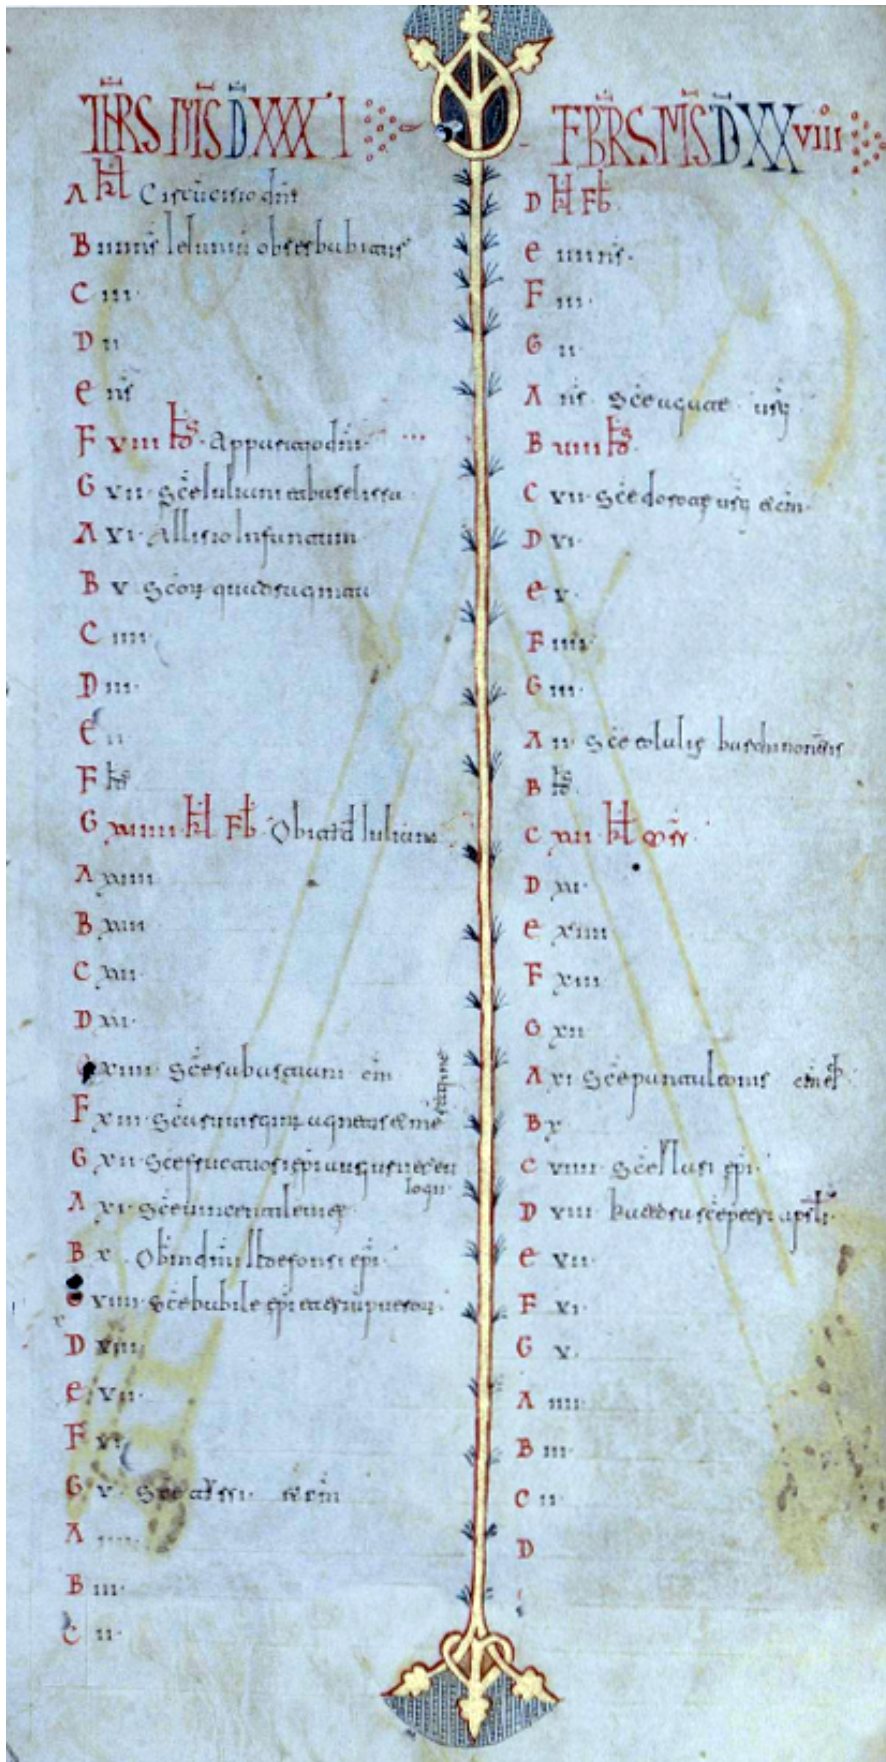 IHRS MS D XXX I
A kl Circucisio dni
B iiii ns Ieiunii obserbabimus
C iii
D ii
e ns
F viii ids apparitio dni
G vii sce Iuliani et baselissa
A vi Allisio Infantum
B v scor quadraginta
C iiii
D iii
e ii
F ids
G xviiii kl Fb Obitu d Iuliani
A xviii
B xvii
C xvi
D xv
xiiii sce sabastiani cm
F xiii sca agnetis
G xii sce fructuosi epi augurii et eulogii
A xi sce uincenti leuite
B x Ob in dni Ildefonsi epi
viiii sce babile epi et trium pueror
D viii
e vii
F vi
G v sce tirsi et cm
A iiii
B iii
C ii
FBRS MS D XX viii
D kl Fb
e iiii ns
F iii
G ii
A ns sce agate uirg
B viii ids
C vii sce dorote uirg et cm
D vi
e v
F iiii
G iii
A ii sce eolalie barcinonensis
B ids
C xvi kl mr
D xv
e xiiii
F xiii
G xii
A xi sce pantaleonis
B x
C viiii sce epi
D viii katedra sce petri apstli
e vii
F vi
G v
A iiii
B iii
C ii
D